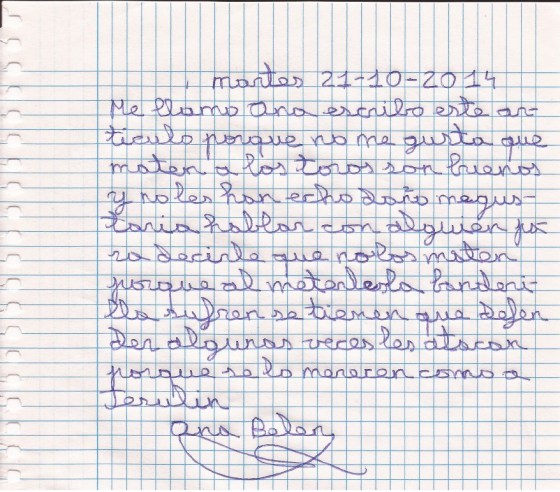 martes 21-10-2014
Me llamo Ana escribo este ar-
ticulo porque no me gusta que
maten a los toros son buenos
y no les han echo daño me gus-
taria hablar con alguien pa
ra decirle que no los maten
porque al meterles la banderi-
lla sufren se tienen que defen
der algunas veces les atacan
porque se lo merecen como a
Jerulin
Ana Belen